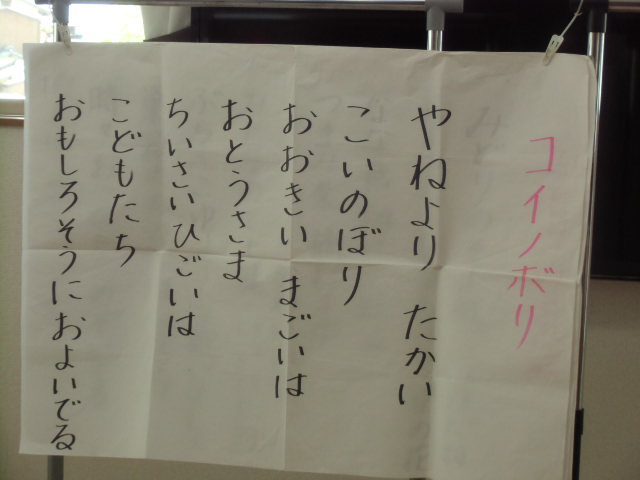 コイノボリ
やねより たかい
こいのぼり
おおきい まごいは
おとうさま
ちいさいひごいは
こどもたち
おもしろそうにおよいでる